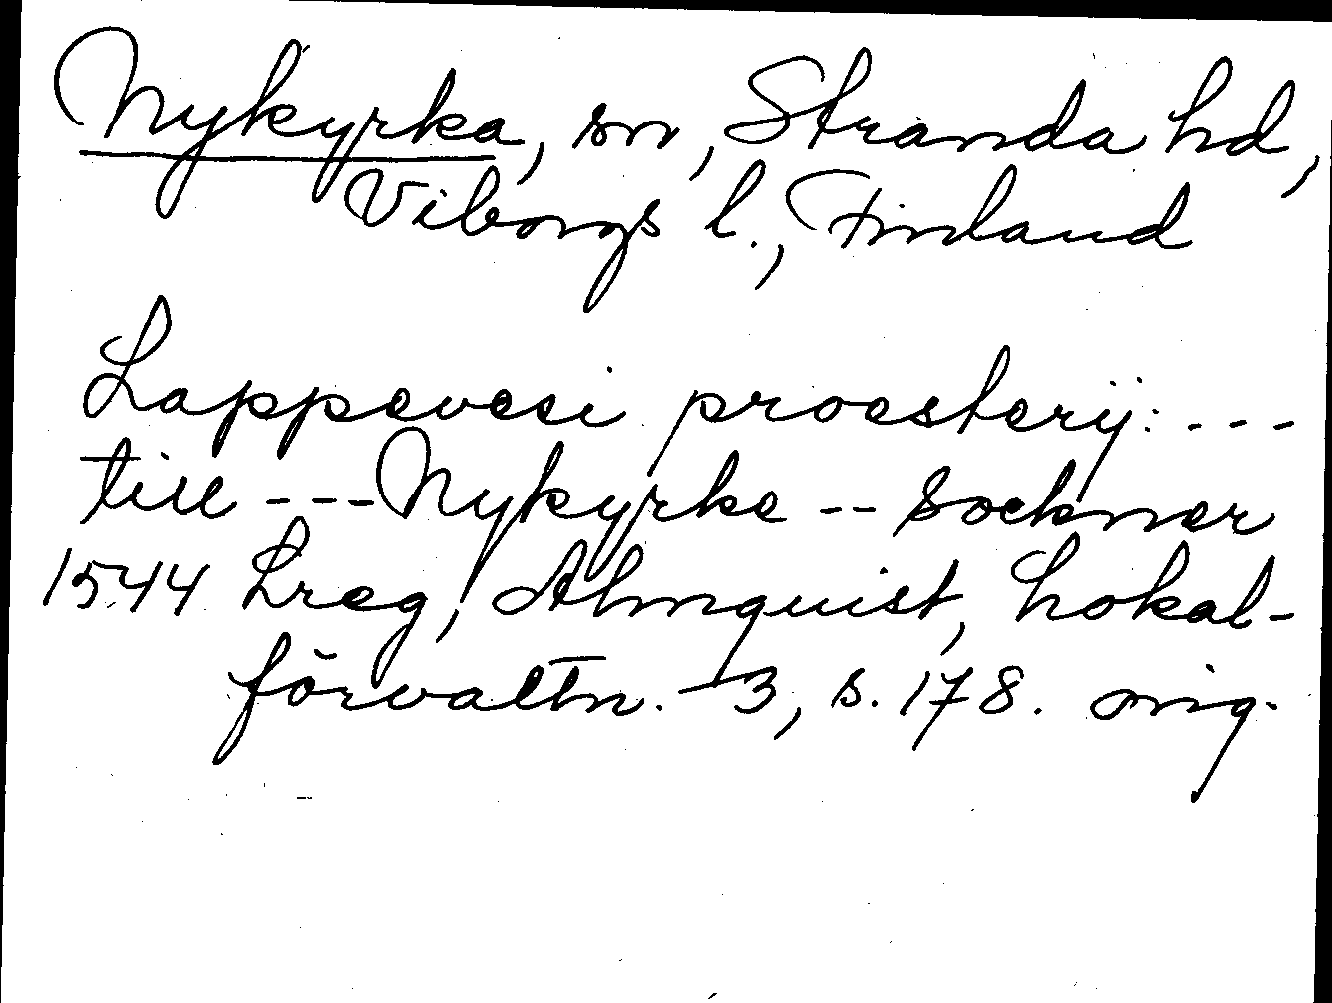 Nykyrka, sn, Stranda hd,
Viborgs l., Finland
Lappevesi proesterij: ---
till --- Nykyrke -- Sockner
1544 Lreg, Almquist, Lokal-
förvaltn. 3, s. 178. orig.